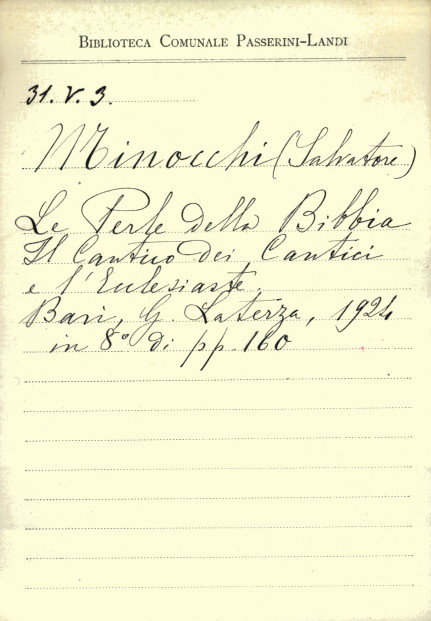 BIBLIOTECA COMUNALE PASSERINI-LANDI
31.V.3.
Minocchi (Salvatore)
Le Perle della Bibbia
Il Cantico dei Cantici
e l'Eclesiaste.
Bari, G. Laterza, 1924
in 8° di pp. 160